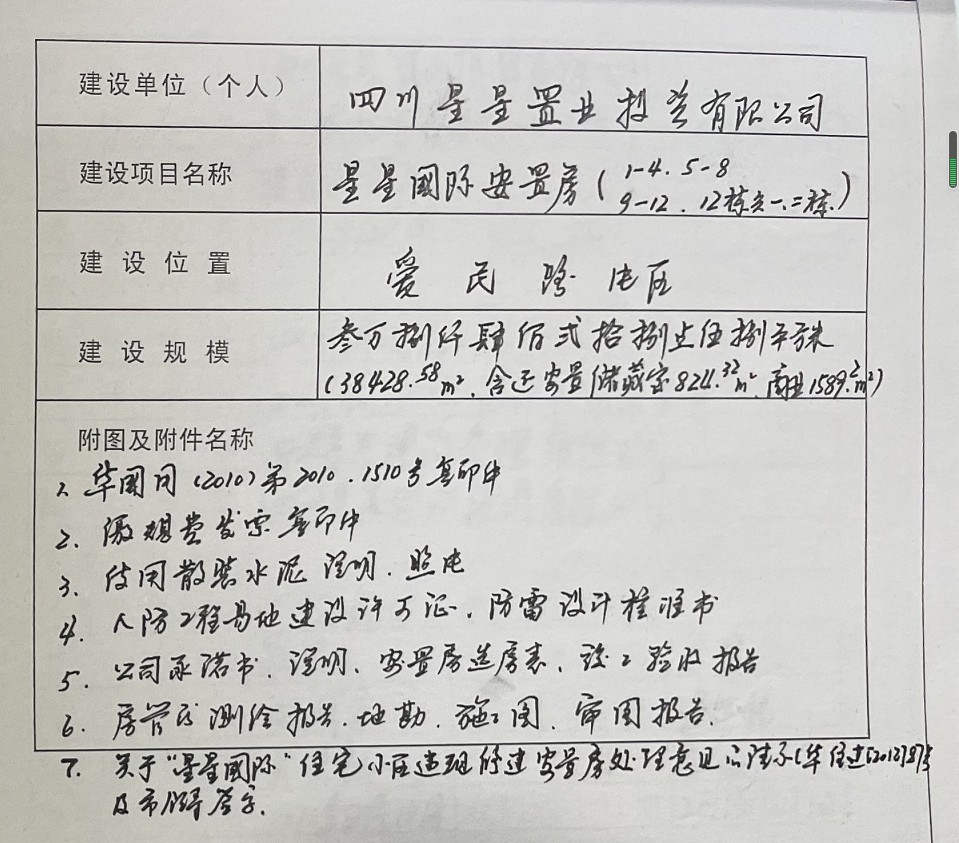 建设单位（个人）
四川星星置业投资有限公司
建设项目名称
星星国际安置房（1-4.5-8
9-12.12栋负一.二栋.）
建设位置
爱民路北区
建设规模
叁万捌仟肆佰弍拾捌点伍捌平方米
(38428.58m².含还安置储藏室824.32m².商业1589.2m²)
附图及附件名称
1. 华国用(2010)第2010.1510号复印件
2. 缴规费发票复印件
3. 使用散装水泥证明.照片
4. 人防工程易地建设许可证.防雷设计核准书
5. 公司承诺书.证明.安置房选房表.竣工验收报告
6. 房管局测绘报告.地勘.施工图.审图报告.
7. 关于“星星国际”住宅小区违规修建安置房处理意见的请示(华住建[2012]87号
及市领导签字.